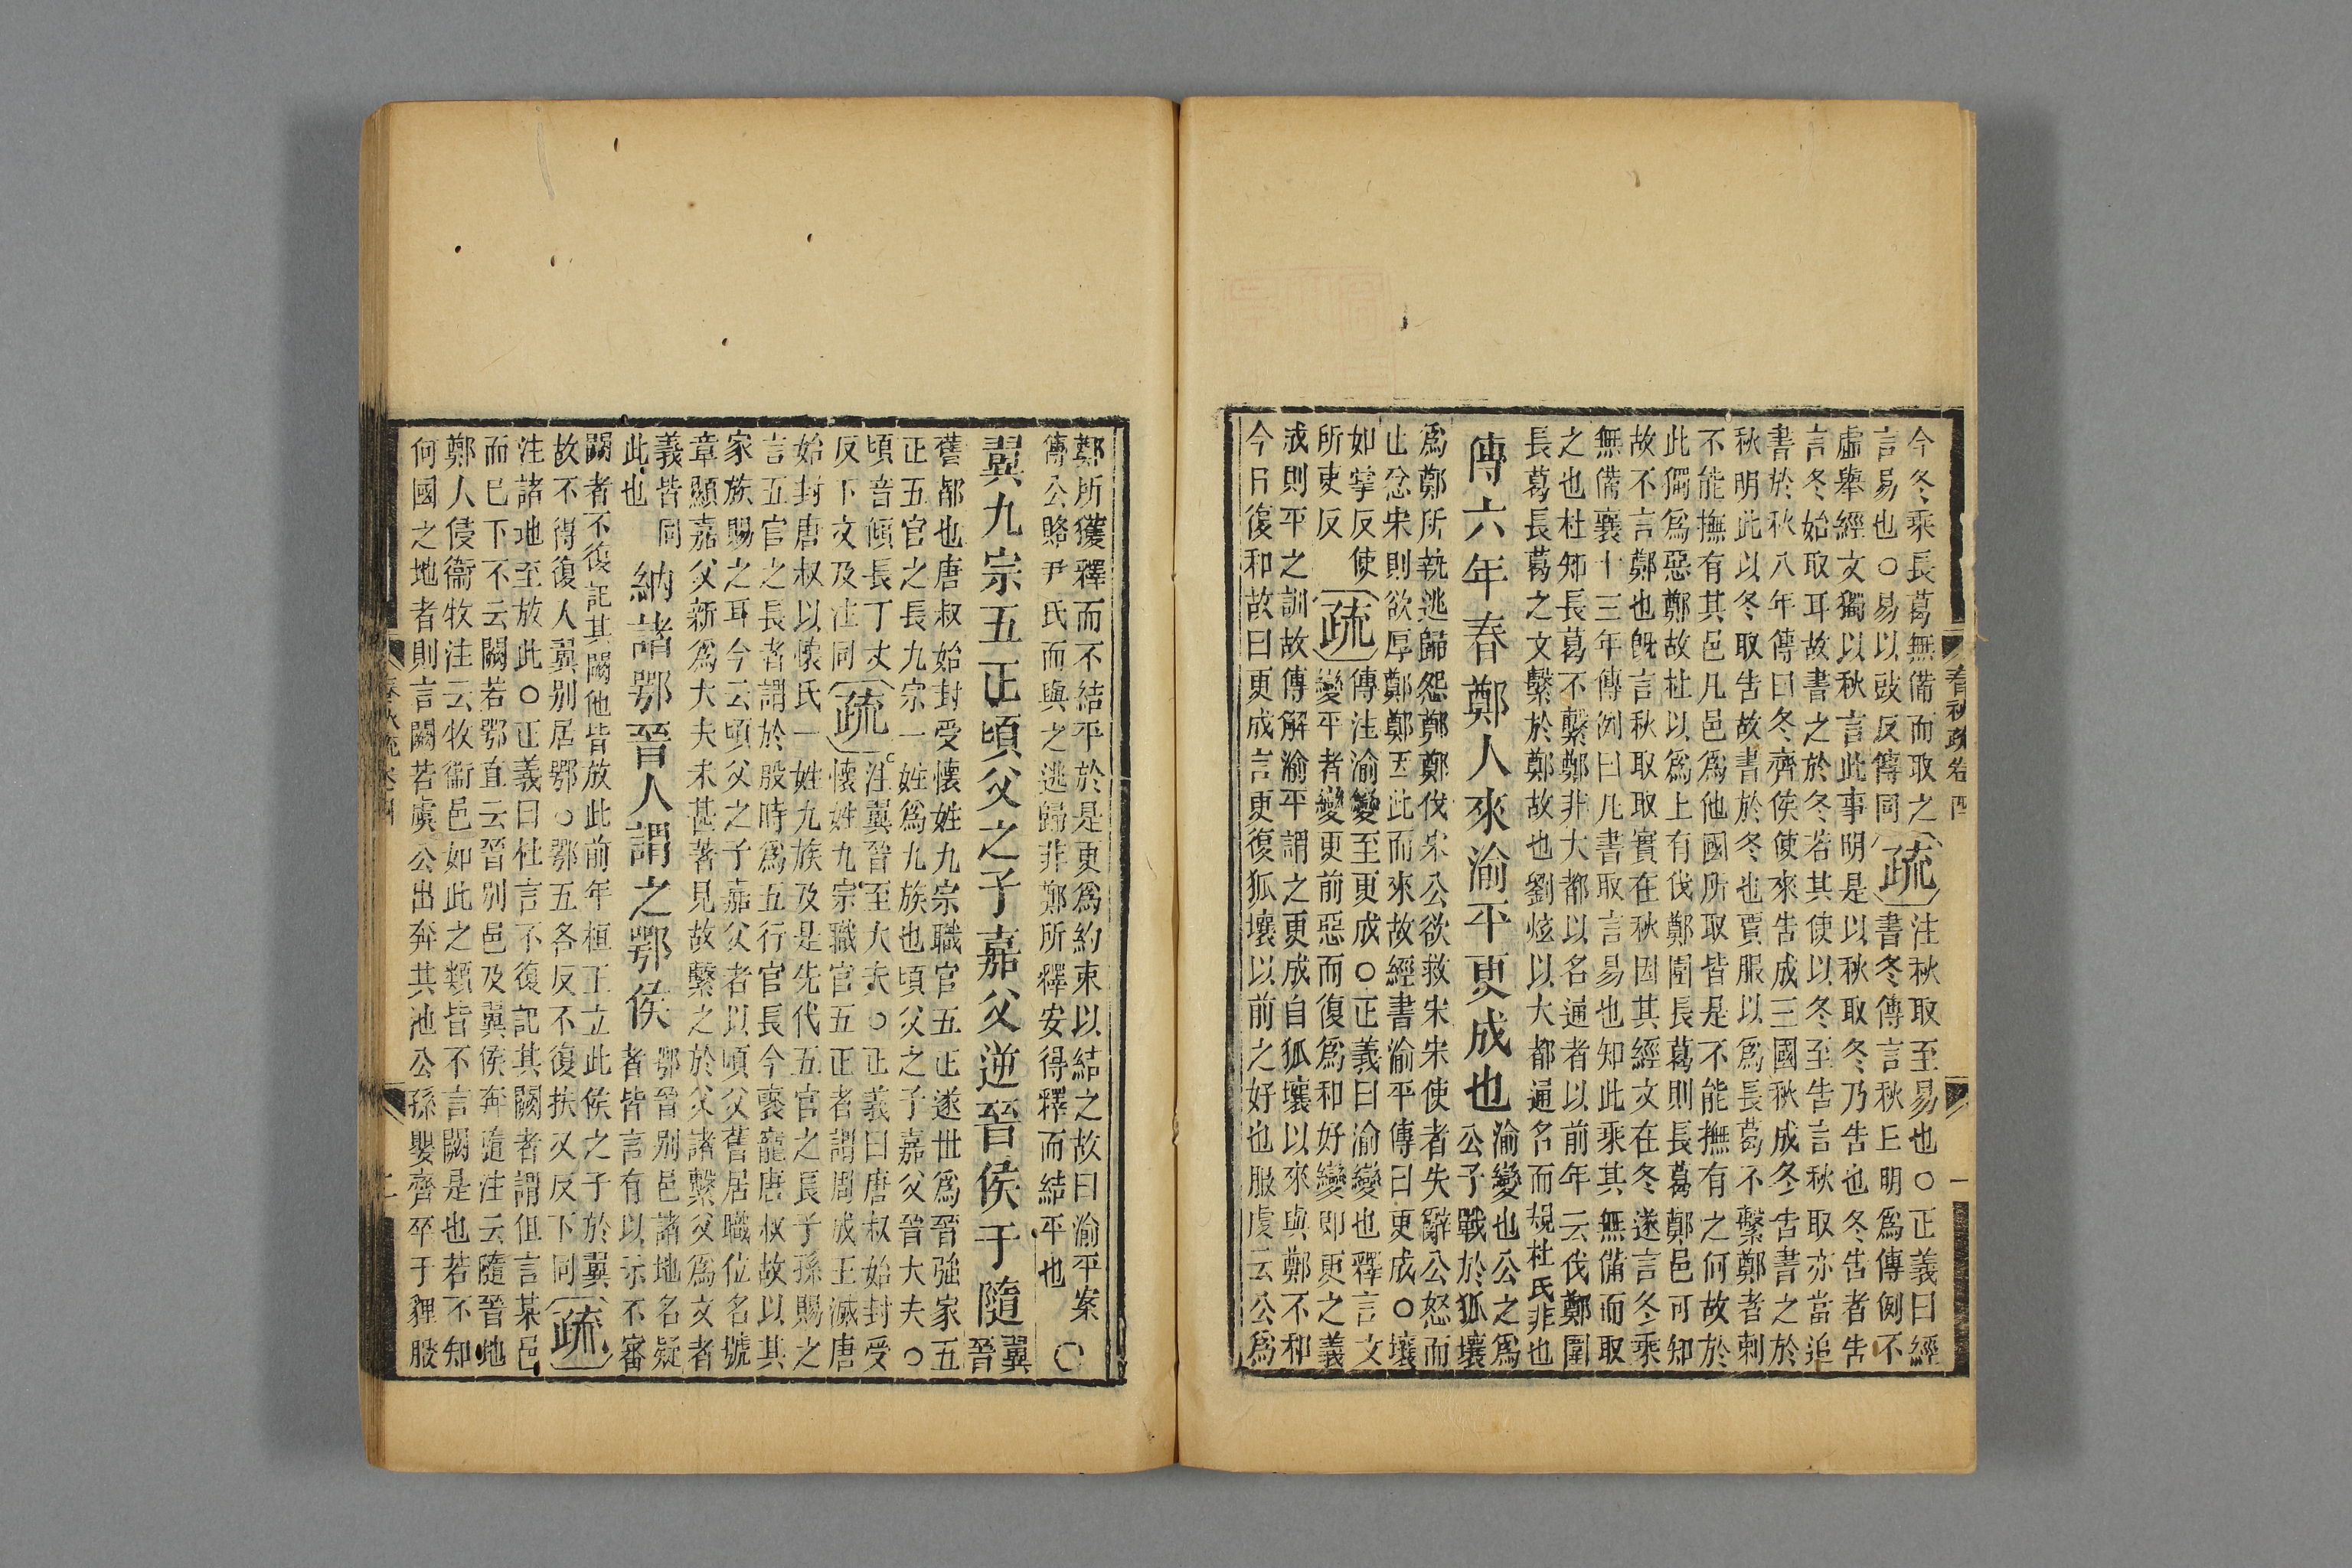 今冬乘長葛無備而取之疏注秋取至易也○正義曰經
言易也○易以豉反傳同書冬傳言秋丘明爲傳例不
虛舉經文獨以秋言此事明是以秋取冬乃告也冬告者告
言冬始取耳故書之於冬若其使以冬至告言秋取亦當追
書於秋八年傳曰冬齊侯使來告成三國秋成冬告書之於
秋明此以冬取告故書於冬也賈服以爲長葛不繫鄭者刺
不能撫有其邑凡邑爲他國所取皆是不能撫有之何故於
此獨爲惡鄭故杜以爲上有伐鄭圍長葛則長葛鄭邑可知
故不言鄭也旣言秋取取實在秋因其經文在冬遂言冬乘
無備襄十三年傳例曰凡書取言易也知此乘其無備而取
之也杜知長葛不繫鄭非大都以名通者以前年云伐鄭圍
長葛長葛之文繫於鄭故也劉炫以大都通名而規杜氏非也
傳六年春鄭人來渝平更成也渝變也公之爲公子戰於狐壤
爲鄭所執逃歸怨鄭鄭伐宋公欲救宋宋使者失辭公怒而
止忿宋則欲厚鄭鄭因此而來故經書渝平傳曰更成○壤
如掌反使所吏反疏傳注渝變至更成○正義曰渝變也釋言文
變平者變更前惡而復爲和好變即更之義
成則平之訓故傳解渝平謂之更成自狐壤以來與鄭不和
今日復和故曰更成言更復狐壤以前之好也服虔云公爲
春秋疏卷四
一
鄭所獲釋而不結平於是更爲約束以結之故曰渝平案
傳公賂尹氏而與之逃歸非鄭所釋安得釋而結平也○
翼九宗五正頃父之子嘉父逆晉侯于隨翼晉
舊都也唐叔始封受懷姓九宗職官五正遂世爲晉強家五
正五官之長九宗一姓爲九族也頃父之子嘉父晉大夫○
頃音傾長丁丈反下文及注同疏注翼晉至大夫○正義曰唐叔始封受
懷姓九宗職官五正者謂周成王滅唐
始封唐叔以懷氏一姓九族及是先代五官之長子孫賜之
言五官之長者謂於殷時爲五行官長今褒寵唐叔故以其
家族賜之耳今云頃父之子嘉父者以頃父舊居職位名號
章顯嘉父新爲大夫未甚著見故繫之於父諸繫父爲文者
義皆同此也納諸鄂晉人謂之鄂侯鄂晉別邑諸地名疑
者皆言有以示不審
闕者不復記其闕他皆放此前年桓王立此侯之子於翼
故不得復入翼別居鄂○鄂五各反不復扶又反下同疏
注諸地至放此○正義曰杜言不復記其闕者謂但言某邑
而巳下不云闕若鄂直云晉別邑及翼侯奔隨注云隨晉地
鄭人侵衞牧注云牧衞邑如此之類皆不言闕是也若不知
何國之地者則言闕若虞公出奔其池公孫嬰齊卒于貍脤
春秋疏卷四